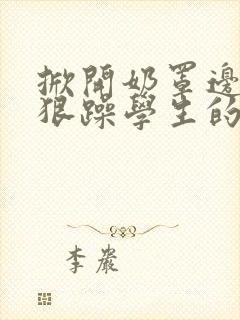 掀開奶罩邊
狠躁學生的
李巖